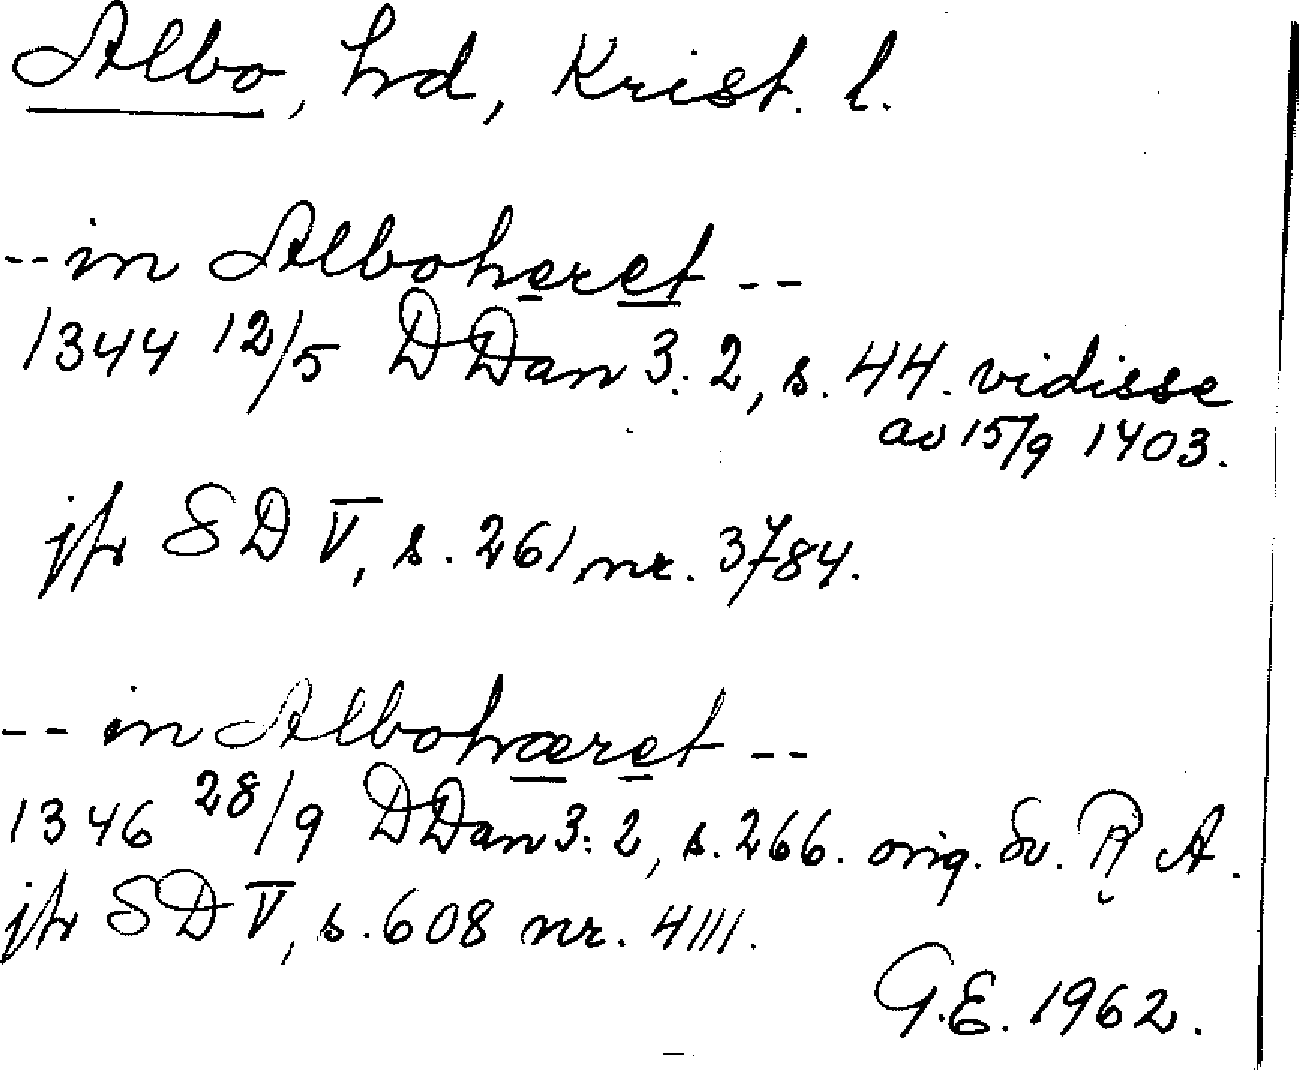 Albo, hd, Krist. l.
-- in Alboheret --
1344 12/5 DDan 3:2, s. 44. vidisse
av 15/9 1403.
jfr SD V, s. 261 nr. 3784.
-- in Albohæret --
1346 28/9 DDan 3:2, s. 266. orig. Sv. RA.
jfr SD V, s. 608 nr. 4111.
G.E. 1962.